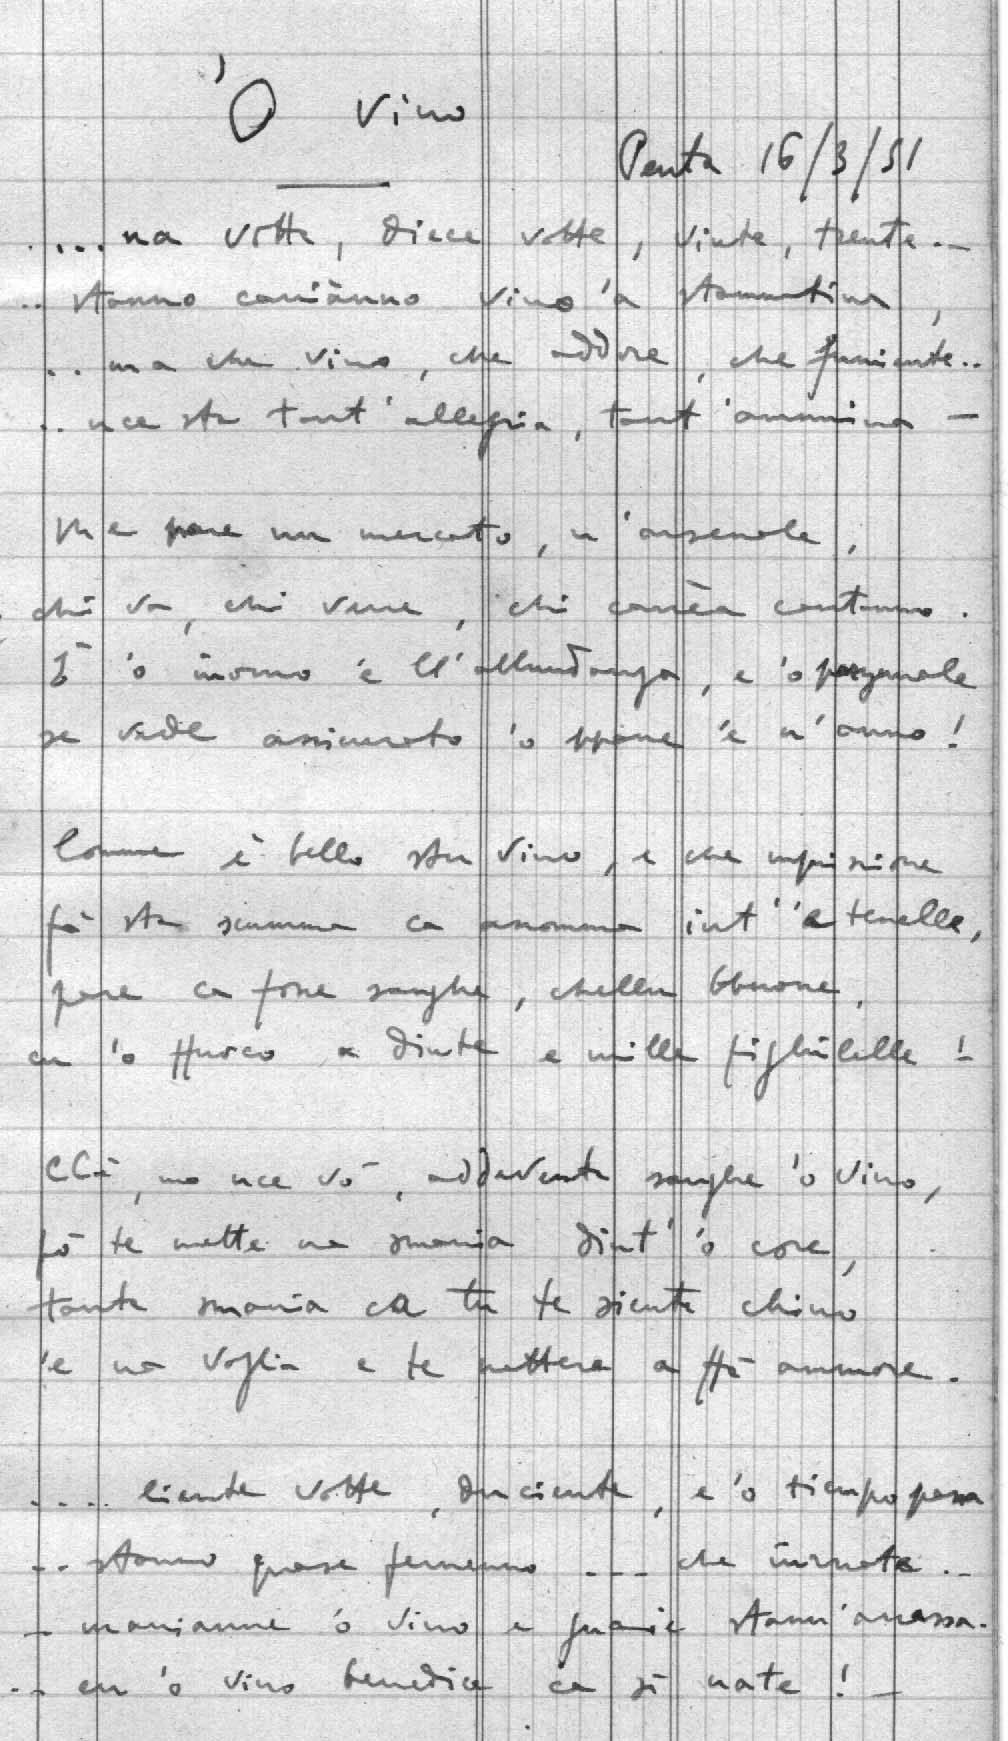 'O Vino
Penta 16/3/51
.... na votta, diece votte, vinte, trenta.-
.. stanno carriànno vino 'a stammatina,
.. ma che vino, che addore, che fummiente..
.. nce sta tant'allegria, tant'ammuina -
Me pare nu mercato, n'arsenale,
chi va, chi vene, chi carrèa cantanno.
È 'o juorno 'e ll'abbundanza, e 'o perzunale
se vede assicurato 'o ppane 'e n'anno!
Comme è bello stu vino, e che impressione
fà sta scumma ca assomma int' 'e tenelle,
pare ca fosse sanghe, chellu bbuono,
cu 'o ffuoco a dinte e mille figliulelle!
CCà, nce vò, addeventa sanghe 'o vino,
pò te mette na smania dint' 'o core,
tanta smania ca tu te siente chino
'e na voglia e te mettere a ffà ammore.
.... Ciento votte, duciento, e 'o tiempo passa
.. stanno quase fernenno --- che jurnata..
- mancianne 'o vino e guaie stann'arrassa.
.. cu 'o vino benedica ca sì nate! -